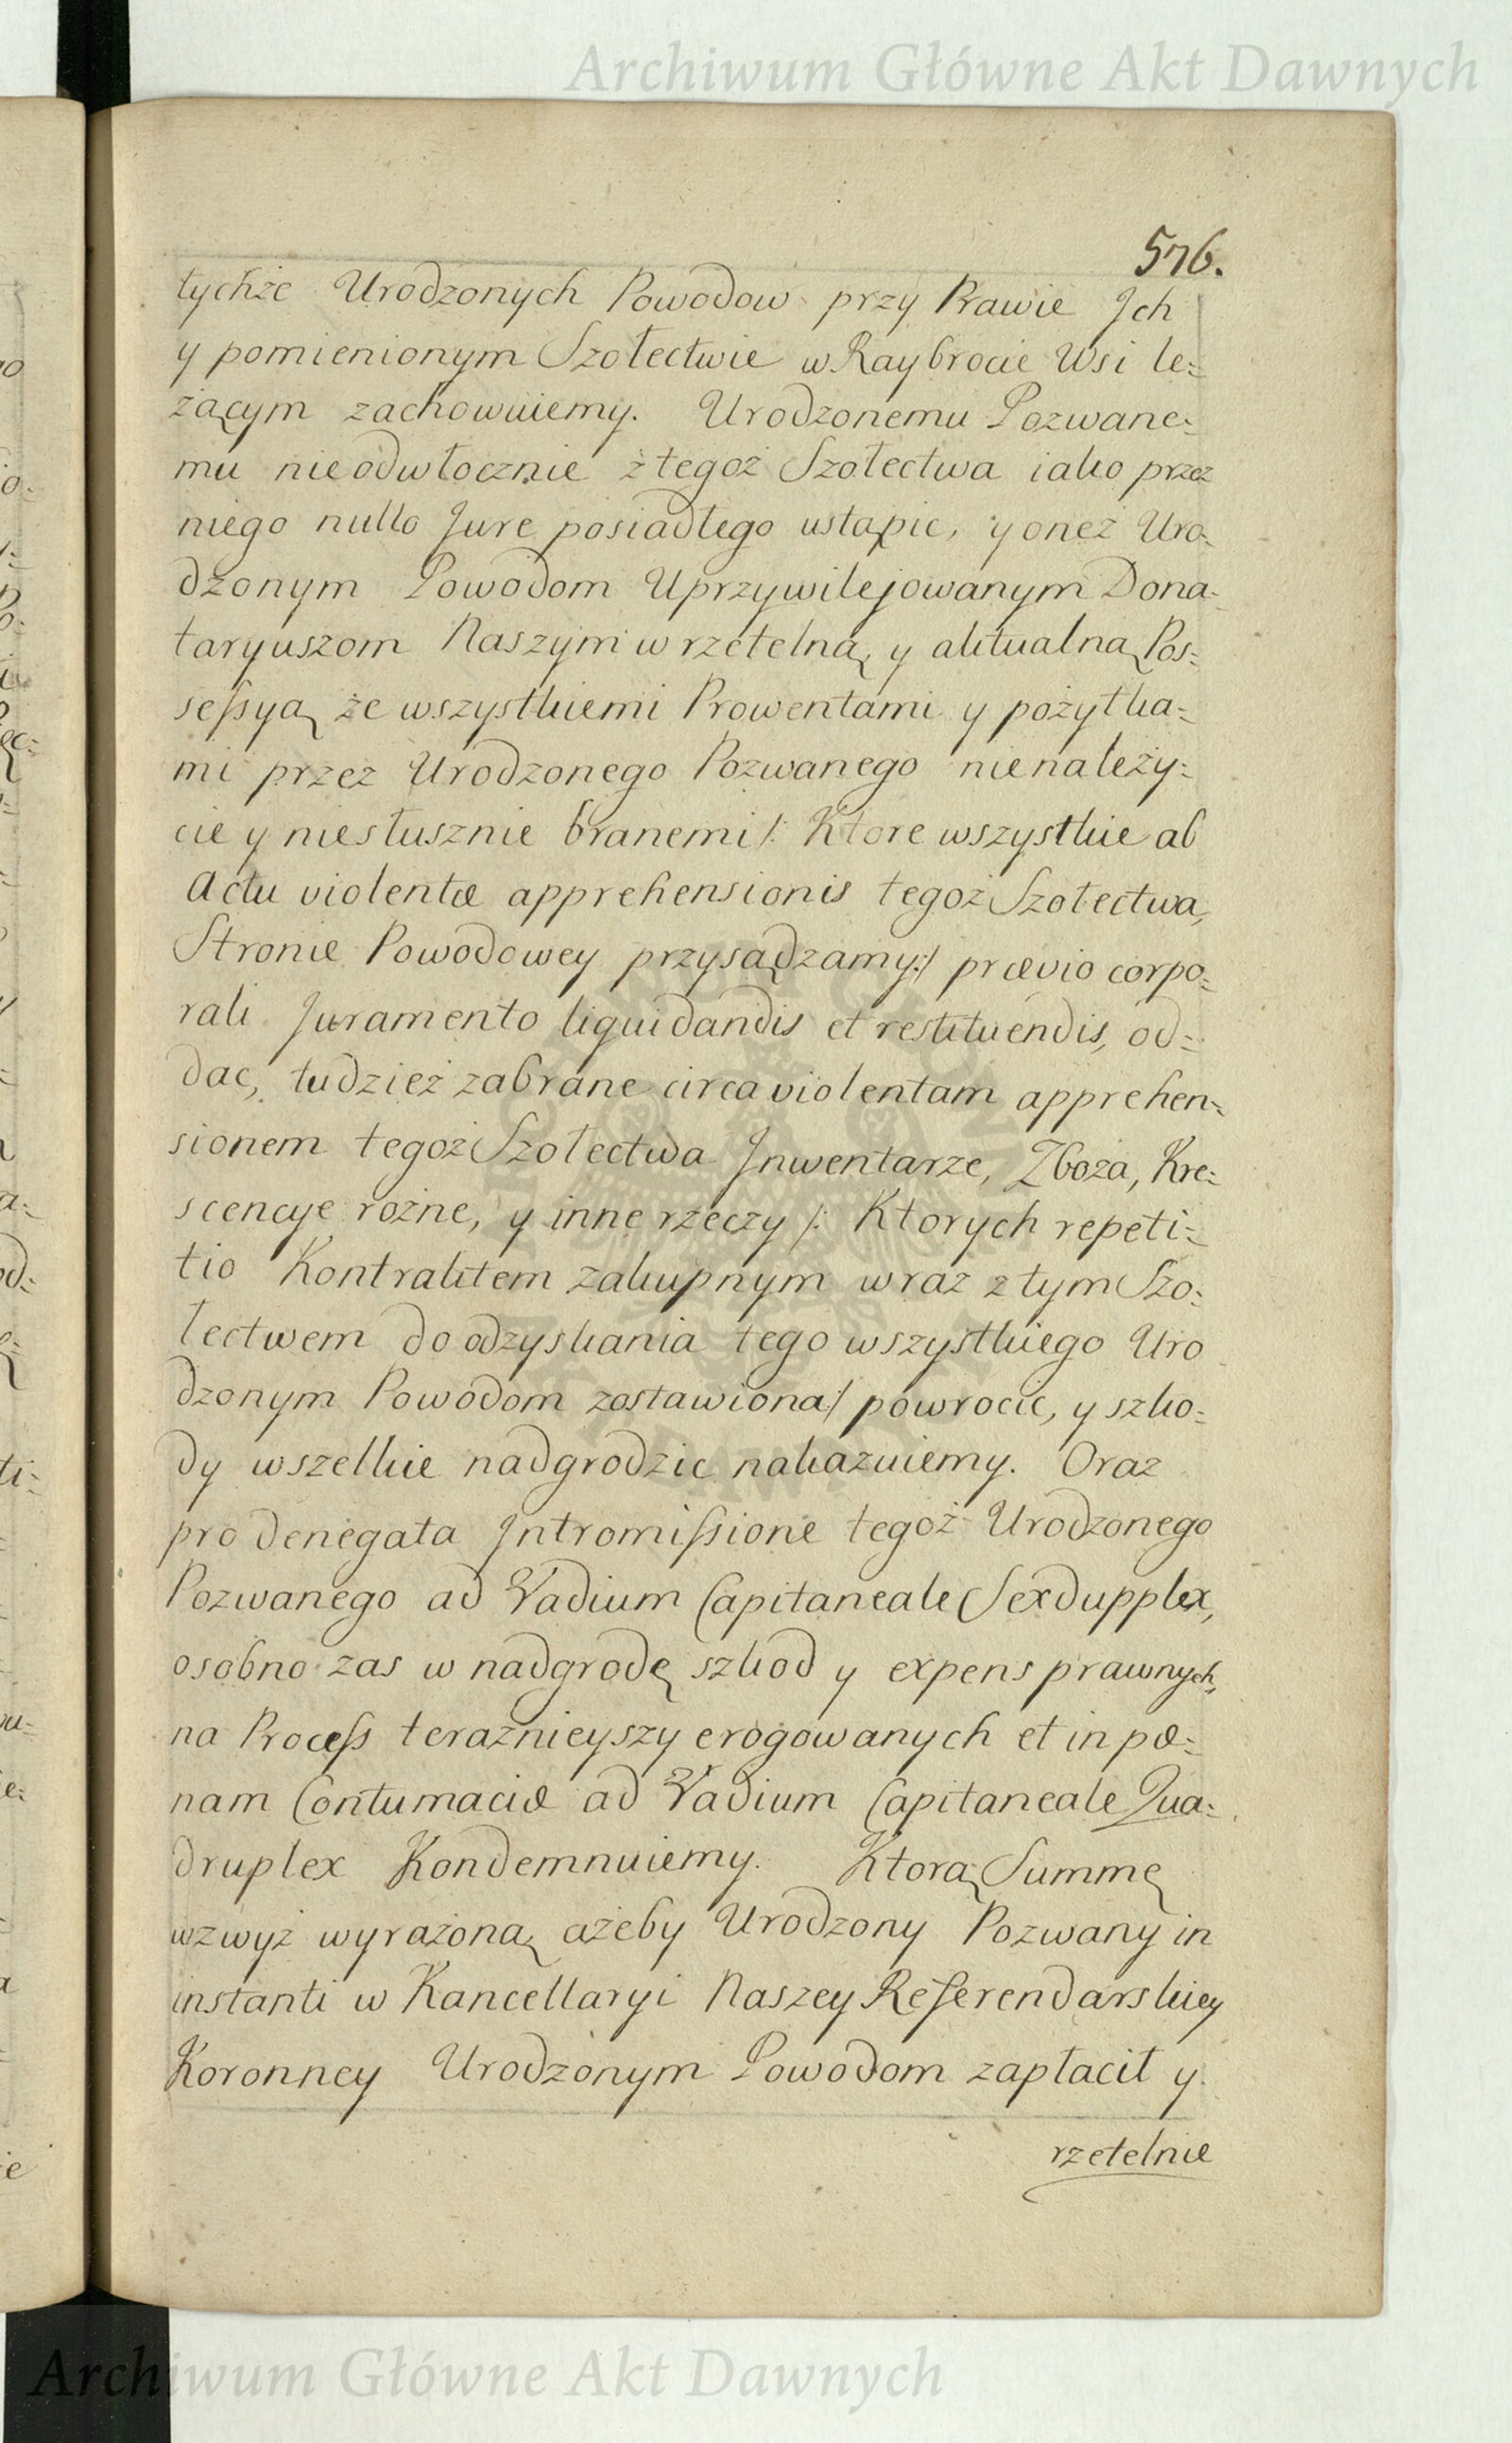 Archiwum Główne Akt Dawnych
576.
tychże Urodzonych Powodow przy Prawie Ich
y pomienionym Szołectwie w Raybrocie Wsi le:
żącym zachowuiemy. Urodzonemu Pozwane:
mu nieodwłocznie z tegoż Szołectwa iako przez
niego nullo Jure posiadłego ustąpic, y oneż Uro:
dzonym Powodom Uprzywilejowanym Dona:
taryuszom Naszym w rzetelną y aktualną Pos:
sessyą ze wszystkiemi Prowentami y pożytka:
mi przez Urodzonego Pozwanego nienależy:
cie y niesłusznie branemi /: Ktore wszystkie ab
Actu violentæ apprehensionis tegoż Szołectwa,
Stronie Powodowey przysądzamy :/ prævio corpo:
rali Juramento liquidandis et restituendis, od:
dac, tudzież zabrane circa violentam apprehen:
sionem tegoż Szołectwa Inwentarze, Zboża, Kre:
scencye rożne, y inne rzeczy /: Ktorych repeti:
tio Kontraktem zakupnym wraz z tym Szo:
łectwem do odzyskania tego wszystkiego Uro
dzonym Powodom zostawiona :/ powrocic, y szko:
dy wszelkie nadgrodzic nakazuiemy. Oraz
pro denegata Intromissione tegoż Urodzonego
Pozwanego ad Vadium Capitaneale Sexdupplex,
osobno zas w nadgrodę szkod y expens prawnych,
na Process teraznieyszy erogowanych et in pœ:
nam Contumaciæ ad Vadium Capitaneale Qua:
druplex Kondemnuiemy. Ktorą Summę
wzwyż wyrażoną ażeby Urodzony Pozwany in
instanti w Kancellaryi Naszey Referendarskiey
Koronney Urodzonym Powodom zapłacił y
rzetelnie
Archiwum Główne Akt Dawnych